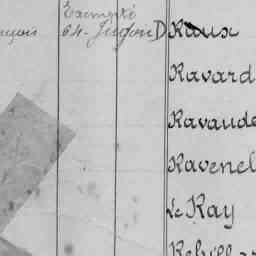 Exempté
64. Jugon D Raux
Ravard
Ravaude
Ravenel
Le Ray